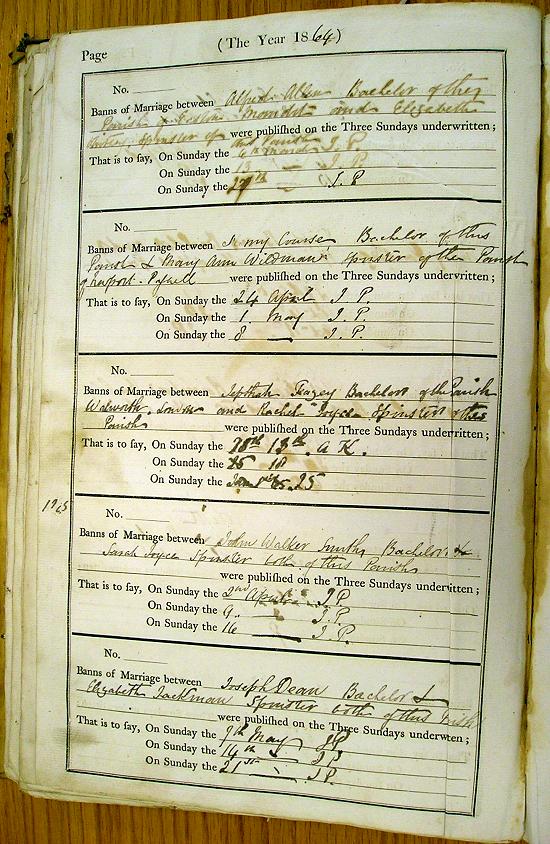 Page
(The Year 1864)
No.
Banns of Marriage between Alfred Allen Bachelor of the
Parish and Elizabeth
Spinster of were publiſhed on the Three Sundays underwritten;
That is to ſay, On Sunday the 6th March J. P.
On Sunday the J. P
On Sunday the J. P
No.
Banns of Marriage between Course, Bachelor of this
Parish & Mary Ann Wildman Spinster of the Parish
of Newport Pagnell were publiſhed on the Three Sundays underwritten;
That is to ſay, On Sunday the 24 April J. P.
On Sunday the 1 May J. P.
On Sunday the 8 — J. P.
No.
Banns of Marriage between Jepthah Bachelor of the Parish
Walworth, London and Rachel Joyce Spinster of this
Parish were publiſhed on the Three Sundays underwritten;
That is to ſay, On Sunday the A K.
On Sunday the 18
On Sunday the 25
1865
No.
Banns of Marriage between John Walker Smith, Bachelor &
Sarah Joyce Spinster both of this Parish
were publiſhed on the Three Sundays underwritten;
That is to ſay, On Sunday the 2nd April J P
On Sunday the 9 — J. P.
On Sunday the 16 — J. P.
No.
Banns of Marriage between Joseph Dean Bachelor &
Elizabeth Jackman Spinster both of this Parish
were publiſhed on the Three Sundays underwritten;
That is to ſay, On Sunday the 7th May J P
On Sunday the 14th J P
On Sunday the 21st J P.